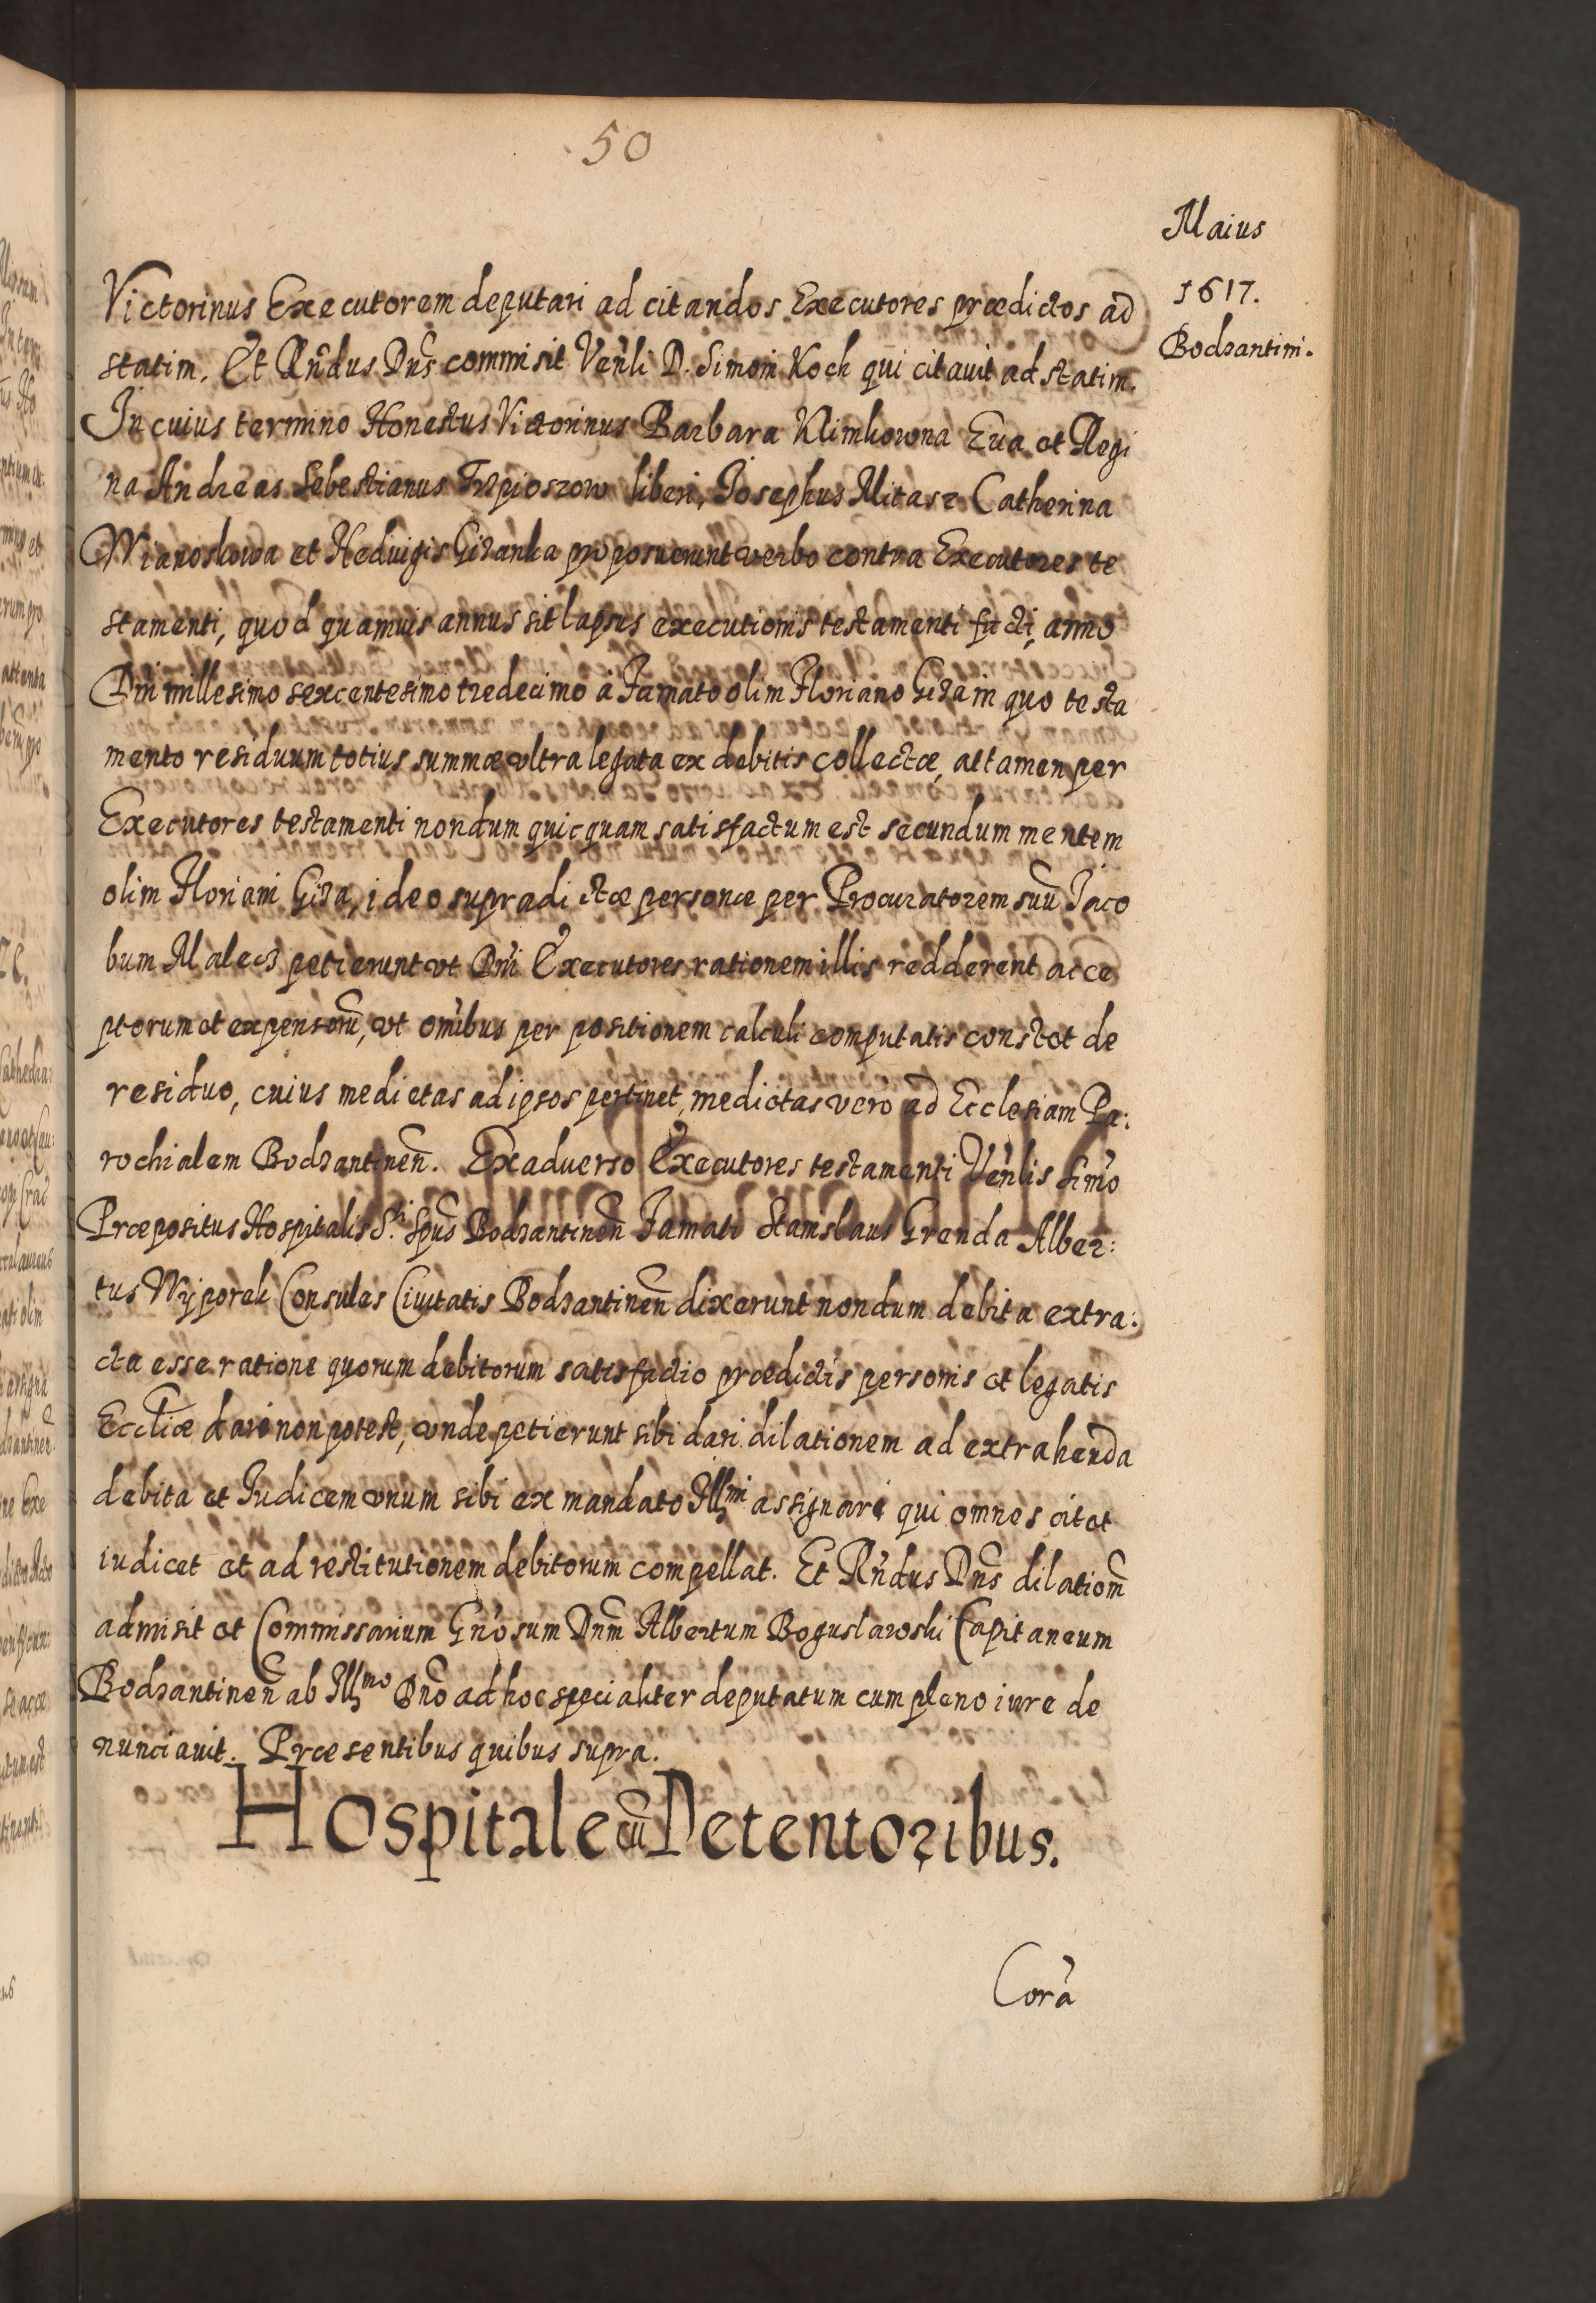 50
Maius
1617.
Bodzantini.
Victorinus Executorem deputari ad citandos Executores prædictos ad
statim. Et Rńdus Dńs commisit Veńli D. Simoni Koch qui citauit ad statim.
In cuius termino Honestus Victorinus Barbara Klimkowna Eua et Regi
na Andreas Sebestianus Trzpioszow liberi, Josephus Mitasz Catherina
Wianoskowa et Heduigis Gizanka proposuerunt verbo contra Executores te
stamenti, quod quamuis annus sit lapsus executionis testamenti facti, anno
Dni millesimo sexcentesimo tredecimo à Famato olim Floriano Giza in quo testa
mento residuum totius summæ vltra legata ex debitis collectæ, attamen per
Executores testamenti nondum quicquam satisfactum est secundum mentem
olim Floriani Giza, ideo supradictæ personæ per Procuratorem suũ Jaco
bum Malecz petierunt vt Dńi Executores rationem illis redderent acce
ptorum et expensorũ, vt omĩbus per positionem calculi computatis constet de
residuo, cuius medietas ad ipsos pertinet, medietas vero ad Ecclesiam Pa:
rochialem Bodzantineñ. Ex aduerso Executores testamenti Veńlis Simo
Præpositus Hospitalis S.ti Spũs Bodzantineñ Famati Stanislaus Grenda Alber:
tus Wyporek Consules Ciuitatis Bodzantineñ dixerunt nondum debita extra:
cta esse ratione quorum debitorum satisfactio prædictis personis et legatis
Eccliæ dari non potest, vnde petierunt sibi dari dilationem ad extrahenda
debita et Judicem vnum sibi ex mandato Illmi assignari qui omnes citet
iudicet et ad restitutionem debitorum compellat. Et Rńdus Dńs dilationẽ
admisit et Commissarium Gńosum Dnm̃ Albertum Boguslawski Capitaneum
Bodzantineñ ab Illmo Dnõ ad hoc specialiter deputatum cum pleno iure de
nunciauit. Præsentibus quibus supra.
Hospitale cũ Detentoribus.
Corà